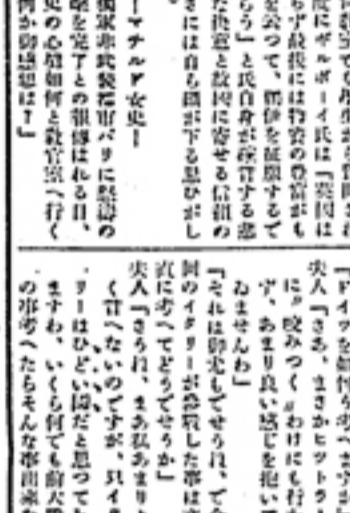 度にボルボーイ氏は「英国は
らず最後には物資の豊富がも
を云つて、獨伊を征服するで
らう」と氏自身が する悲
た決意と故国に寄せる信頼の
さには自ら頭が下る思ひがし
。
ーマチルド女史ー
獨軍非武装都市パリに怒濤の
撃を完了との報傳はれる日、
史の心境如何と教官室へ行く
何か御感想は?」
「ドイツを如何お考へますか
夫人「さあ、まさかヒットラー
に〃咬みつく〃わけにも行か
ず、あまり良い感じを抱いて
ゐませんわ」
「それは御尤もでせうね、で今
回のイタリーが参戦した事は
直に考へてどうでせうか」
夫人「さうね、まあ私あまり
く言へないのですが、只イタ
リーはひどい国だと思つて
ますわ、いくら何でも前大戦
の事考へたらそんな事出来な